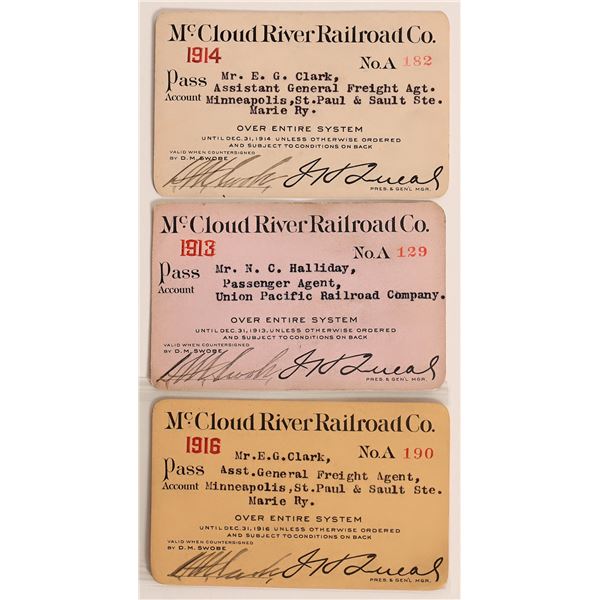 McCloud River Railroad Co.
1914 No. A 182
Pass Mr. E. G. Clark,
Account Assistant General Freight Agt.
Minneapolis, St. Paul & Sault Ste.
Marie Ry.
OVER ENTIRE SYSTEM
UNTIL DEC. 31, 1914 UNLESS OTHERWISE ORDERED
AND SUBJECT TO CONDITIONS ON BACK
VALID WHEN COUNTERSIGNED
BY D. M. SWOBE
D M Swobe J H Queal
PRES. & GEN'L MGR.
McCloud River Railroad Co.
1913 No. A 129
Pass Mr. N. C. Halliday,
Account Passenger Agent,
Union Pacific Railroad Company.
OVER ENTIRE SYSTEM
UNTIL DEC. 31, 1913, UNLESS OTHERWISE ORDERED
AND SUBJECT TO CONDITIONS ON BACK
VALID WHEN COUNTERSIGNED
BY D. M. SWOBE
D M Swobe J H Queal
PRES. & GEN'L MGR.
McCloud River Railroad Co.
1916 No. A 190
Pass Mr. E. G. Clark,
Account Asst. General Freight Agent,
Minneapolis, St. Paul & Sault Ste.
Marie Ry.
OVER ENTIRE SYSTEM
UNTIL DEC. 31, 1916 UNLESS OTHERWISE ORDERED
AND SUBJECT TO CONDITIONS ON BACK
VALID WHEN COUNTERSIGNED
BY D. M. SWOBE
D M Swobe J H Queal
PRES. & GEN'L MGR.